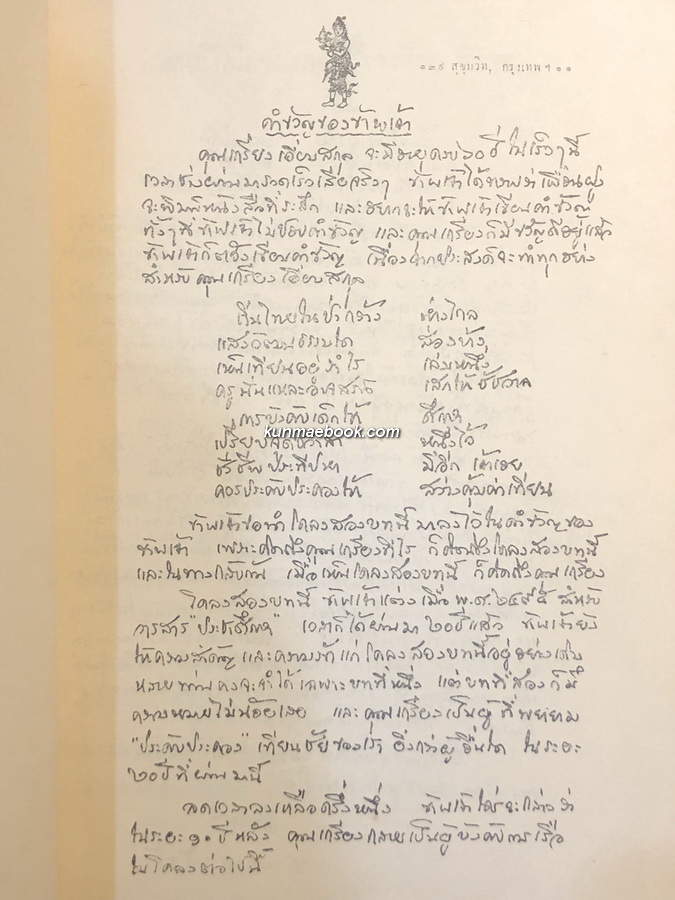 ๑๓๙ สุขุมวิท, กรุงเทพฯ ๑๑
คำขวัญของข้าพเจ้า
คุณเกรียง เอี่ยมสกุล จะมีอายุครบ ๖๐ ปี ในเร็วๆ นี้
เวลาช่างผ่านมารวดเร็วเสียจริงๆ ข้าพเจ้าได้ทราบว่าเพื่อนฝูง
จะพิมพ์หนังสือที่ระลึก และอยากจะให้ข้าพเจ้าเขียนคำขวัญ
ทั้งๆ ที่ข้าพเจ้าไม่ชอบคำขวัญ และคุณเกรียงก็มีขวัญดีอยู่แล้ว
ข้าพเจ้าก็ยังเขียนคำขวัญ เนื่องจากประสงค์จะทำทุกอย่าง
สำหรับคุณเกรียง เอี่ยมสกุล
ถิ่นไทยในป่ากว้าง ห่างไกล
แสงวัฒนธรรมใด ส่องบ้าง
เห็นเทียนอยู่รำไร เล่มหนึ่ง
ครูนั่นแหละอาจสร้าง เสกให้ชัชวาล
การบังคับเด็กให้ ศึกษา
เปรียบจุดชวาลา หนึ่งไว้
ชั่วชีพประทีปพา มีอีก เล่าเอย
ควรประคับประคองให้ สว่างคุ้มค่าเทียน
ข้าพเจ้าขอนำโคลงสองบทนี้ มาลงไว้ในคำขวัญของ
ข้าพเจ้า เพราะคิดถึงคุณเกรียงทีไร ก็คิดถึงโคลงสองบทนี้
และในทางกลับกัน เมื่อเห็นโคลงสองบทนี้ ก็คิดถึงคุณเกรียง
โคลงสองบทนี้ ข้าพเจ้าแต่ง เมื่อ พ.ศ. ๒๔๙๕ สำหรับ
วารสาร "ประชาศึกษา" เวลาก็ได้ผ่านมา ๒๐ ปีแล้ว ข้าพเจ้ายัง
ให้ความสำคัญ และความรัก แก่โคลงสองบทนี้อยู่อย่างเดิม
หลายท่านคงจะจำได้เฉพาะบทที่หนึ่ง แต่บทที่สองก็มี
ความหมายไม่น้อยเลย และคุณเกรียงเป็นผู้ที่พยายาม
"ประคับประคอง" เทียนชัยของเรา ยิ่งกว่าผู้อื่นใด ในระยะ
๒๐ ปีที่ผ่านมานี้
ลดเวลาลงเหลือครึ่งหนึ่ง ข้าพเจ้าใคร่จะกล่าวว่า
ในระยะ ๑๐ ปีหลัง คุณเกรียงกลายเป็นผู้บังคับการเรือ
ในโคลงต่อไปนี้
kunmaebook.com